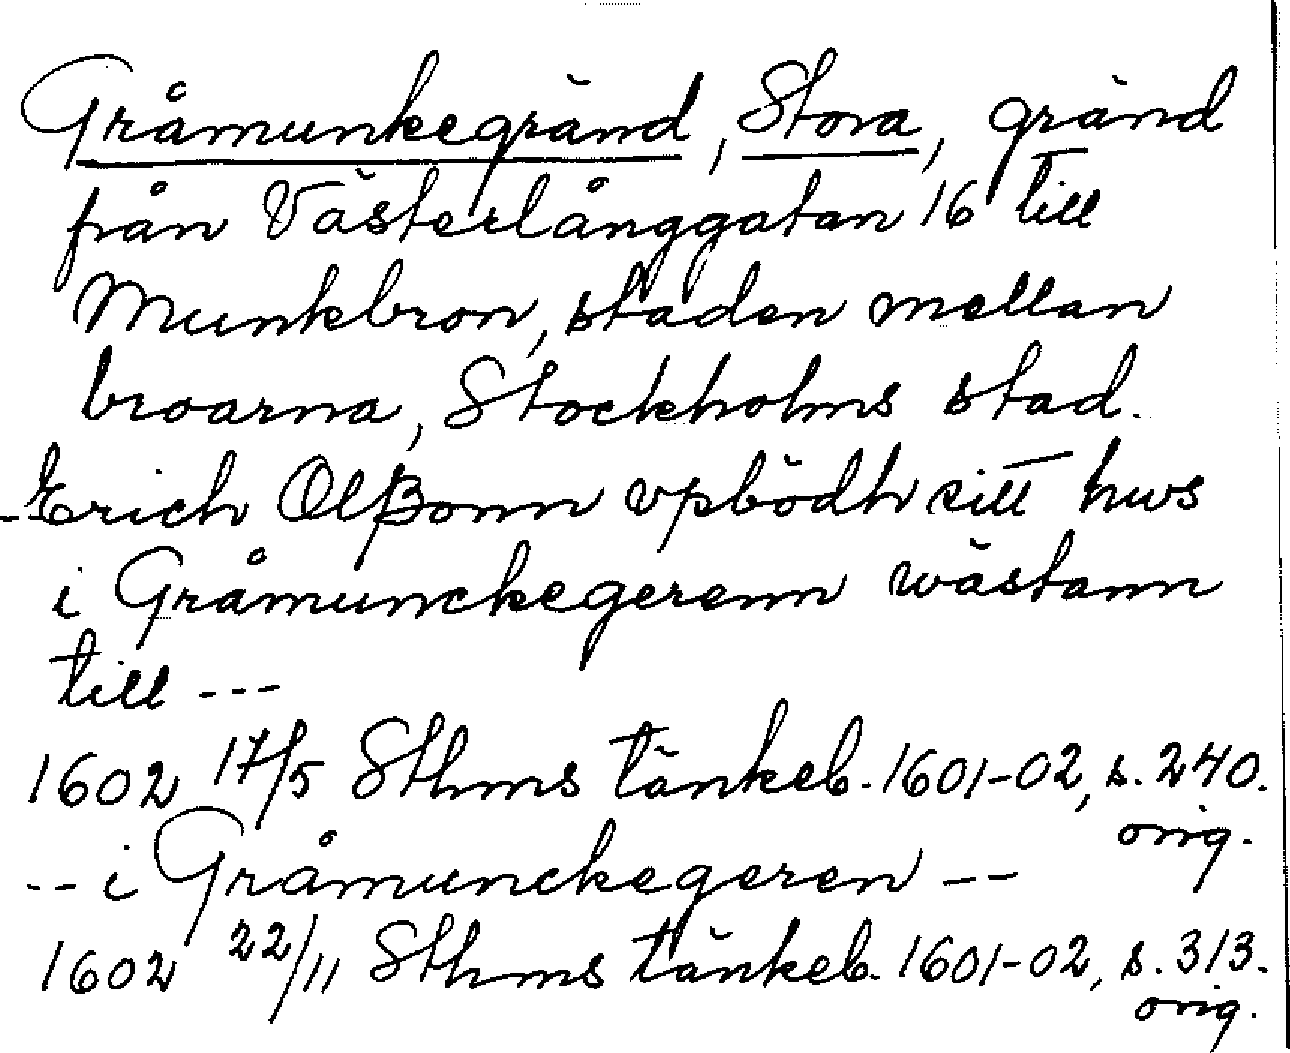 Gråmunkegränd, Stora, gränd
från Västerlånggatan 16 till
Munkbron, staden mellan
broarna, Stockholms stad.
- Erich Olßonn vpbödh sitt hws
i Gråmunckegerenn wästann
till ---
1602 17/5 Sthms tänkeb. 1601-02, s. 240.
orig.
-- i Gråmunckegeren --
1602 22/11 Sthms tänkeb. 1601-02, s. 313.
orig.